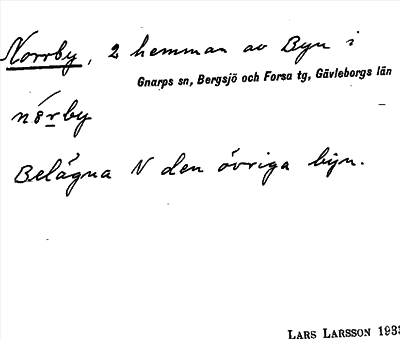 Norrby, 2 hemman av Byn i
Gnarps sn, Bergsjö och Forsa tg, Gävleborgs län
Belägna N den övriga byn.
LARS LARSSON 1933